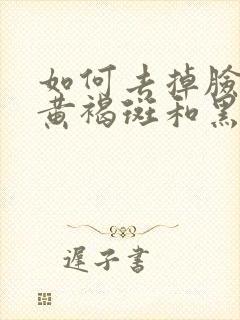 如何去掉臉
黃褐斑和黑
遲子書